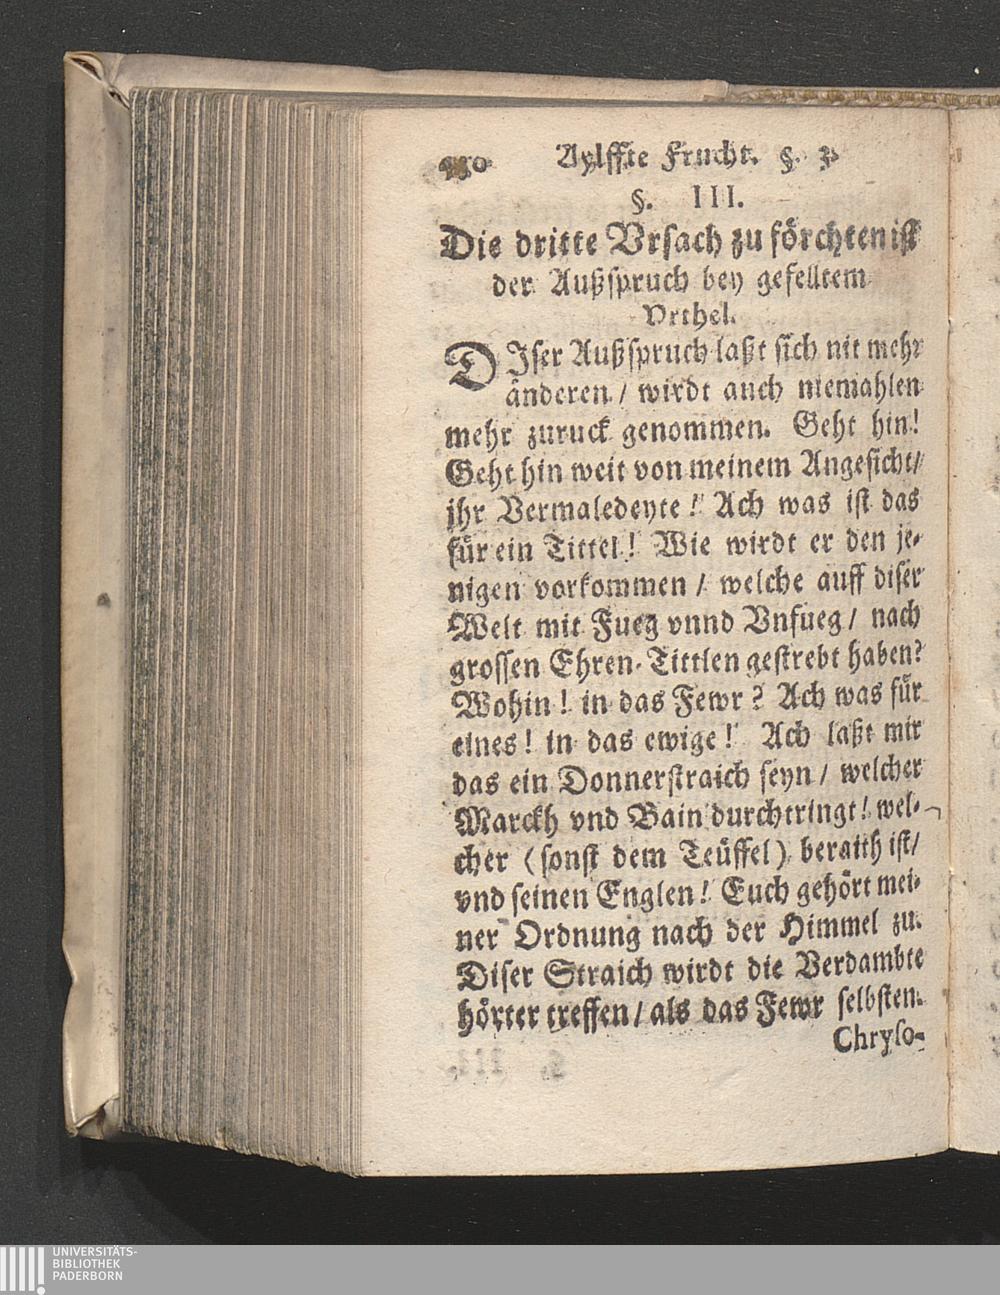 Aylffte Frucht. §. 3.
§. III.
Die dritte Vrsach zu förchten ist
der Außspruch bey gefelltem
Vrthel.
DIser Außspruch laßt sich nit mehr
änderen / wirdt auch niemahlen
mehr zuruck genommen. Geht hin!
Geht hin weit von meinem Angesicht /
jhr Vermaledeyte! Ach was ist das
für ein Tittel! Wie wirdt er den je-
nigen vorkommen / welche auff diser
Welt mit Fueg vnnd Vnfueg / nach
grossen Ehren-Tittlen gestrebt haben?
Wohin! in das Fewr? Ach was für
eines! in das ewige! Ach laßt mir
das ein Donnerstraich seyn / welcher
Marckh vnd Bain durchtringt! wel-
cher (sonst dem Teüffel) beraith ist /
vnd seinen Englen! Euch gehört mei-
ner Ordnung nach der Himmel zu.
Diser Straich wirdt die Verdambte
hörter treffen / als das Fewr selbsten.
Chryso-
UNIVERSITÄTS-
BIBLIOTHEK
PADERBORN